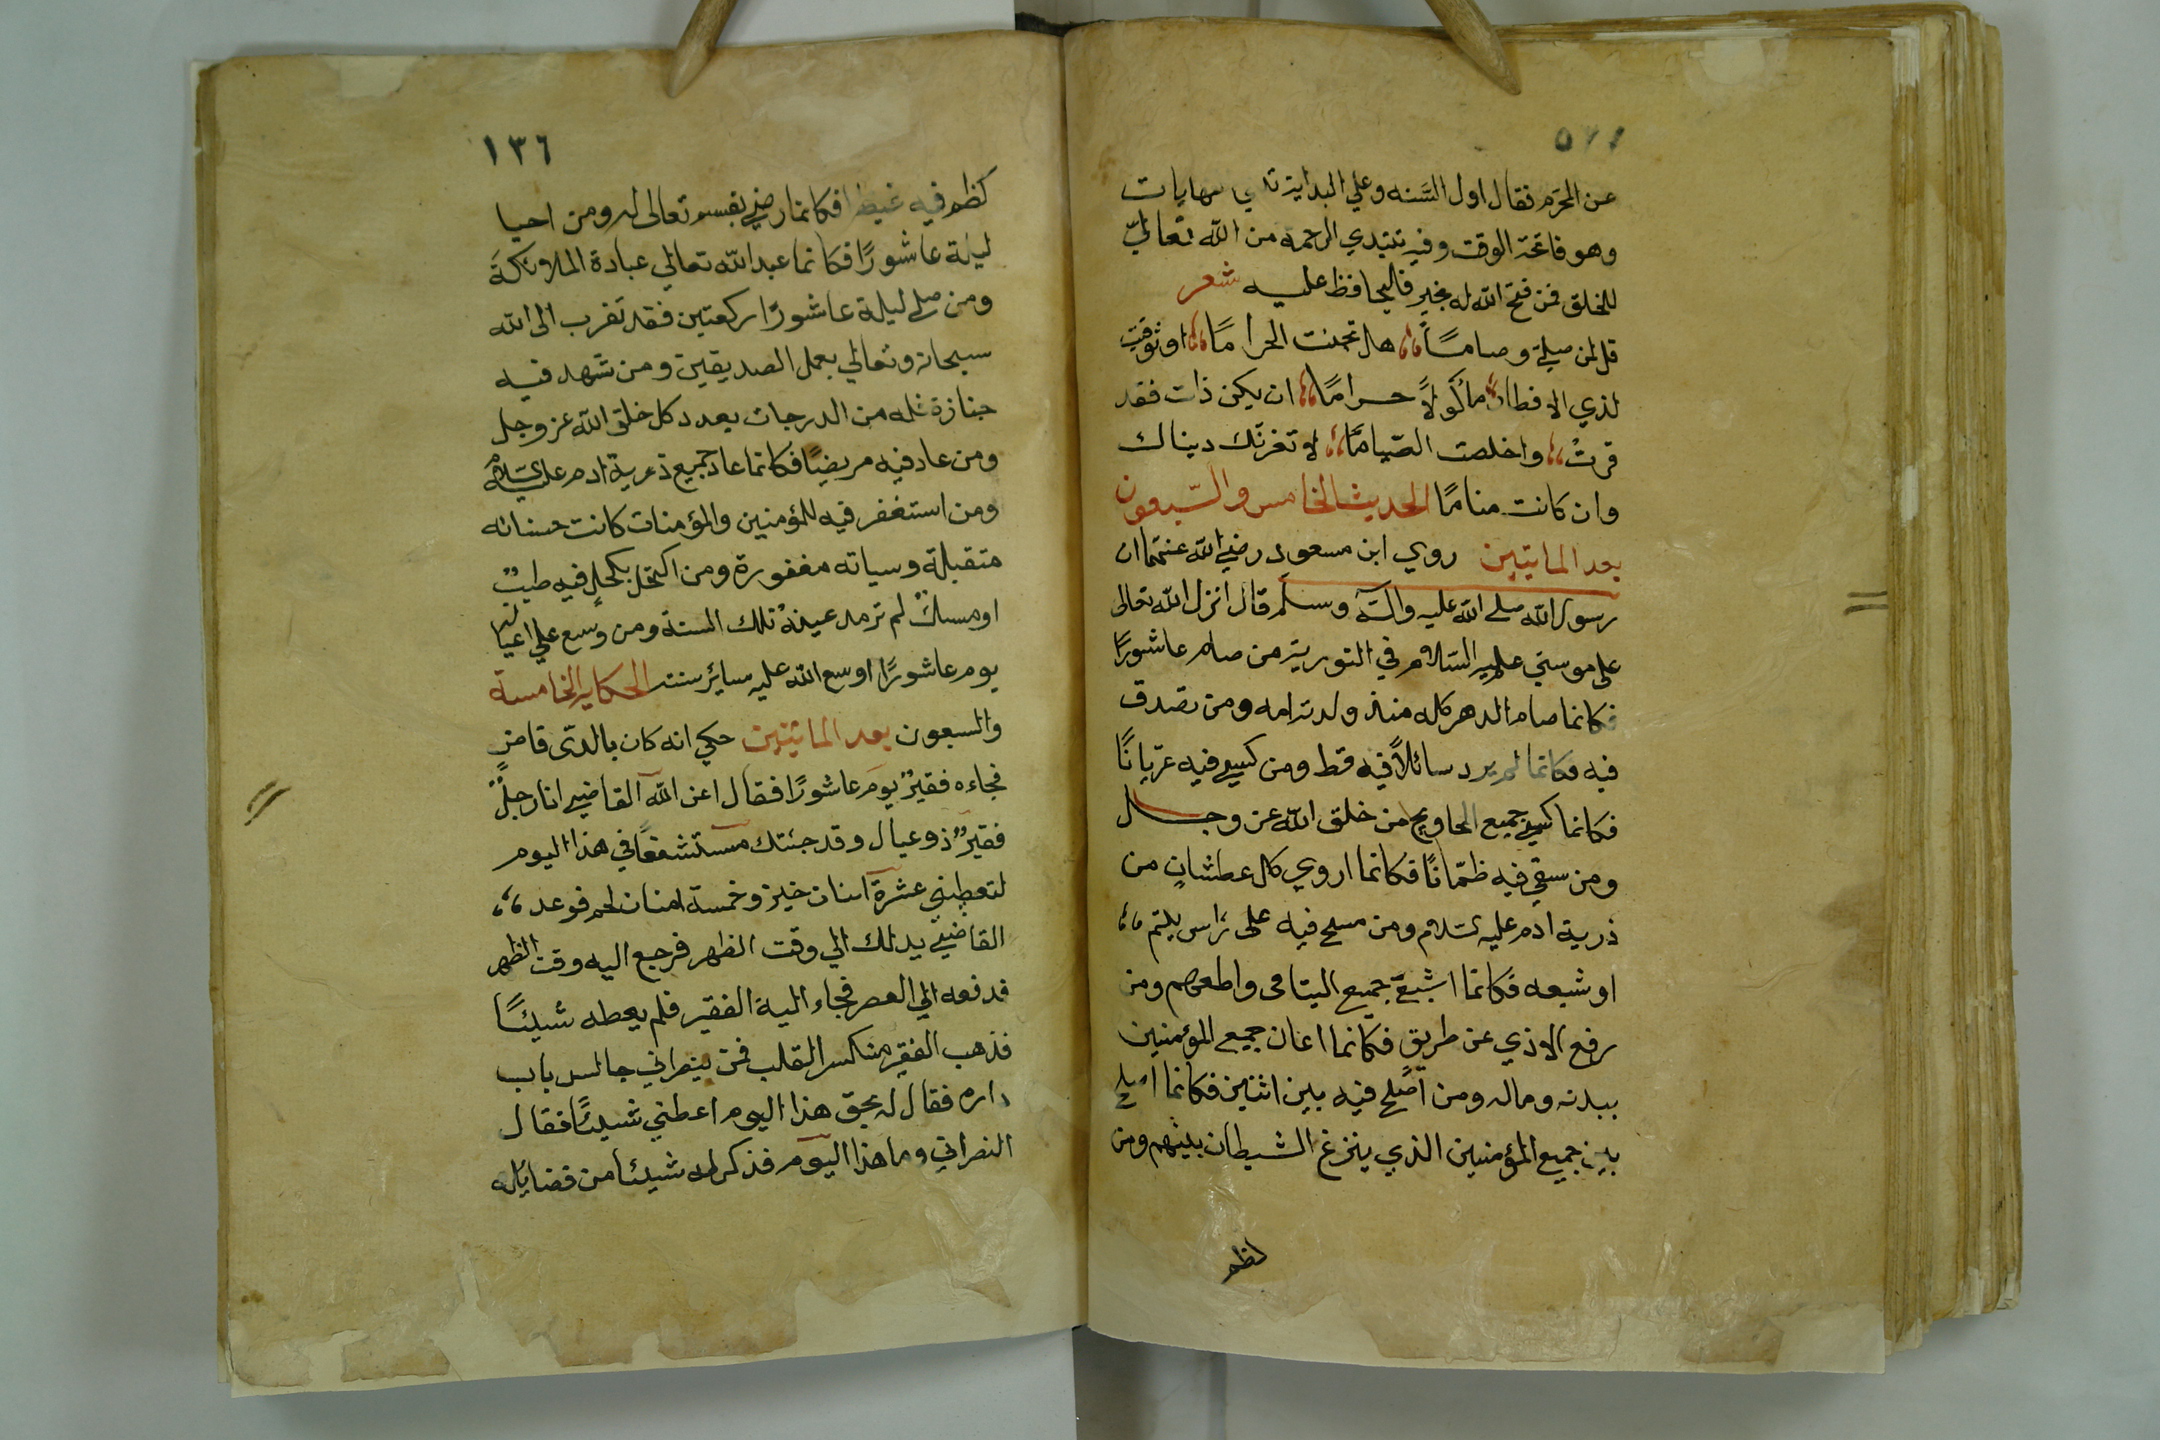 عن المحرم فقال اول السَنه وعلي البداية
وهو فاتحة الوقت وفيه تبتدي الرحمة من الله تعالي
للخلق فمن فتح الله له بخير فاليحافظ عليه شعر
قل لمن صلي وصاماً هل تجنبت الحراما او توقيت
لذي الافطار ماكولاً حراماً ان يكن ذات فقد
قرت واخلصت الصياماً لا تغرنك دنياك
وان كانت مناماً الحديث الخامس والسبعون
بعد الماتيين روي ابن مسعود رضي الله عنهما ان
رسول الله صلي الله عليه واله وسلم قال انزل الله تعالى
على موسي عليه السلام في التورية من صام عاشورًا
فكانما صام الدهر كله منذ ولدته امه ومن تصدق
فيه فكانما لم يرد سائلاً فيه قط ومن كسي فيه عريانًا
فكانما كسي جميع المحاويج من خلق الله عز وجل
ومن سقي فيه ظمّانًا فكانما اروي كل عطشان من
ذرية ادم عليه سلام ومن مسح فيه على راس يتيم
او شبعه فكانما اشبع جميع اليتامى واطعمهم ومن
رفع الاذي عن طريق فكانما اعان جميع المؤمنين
ببدنه وماله ومن اصلح فيه بين اثنين فكانما اصلح
بين جميع المؤمنين الذي ينزغ الشيطان بينهم ومن
كظم
١٣٦
كظم فيه غيظا فكانما رضي بقسم تعالى له ومن احيا
ليلة عاشورًا فكانما عبد الله تعالي عبادة الملائكة
ومن صلي ليلة عاشورًا ركعتين فقد تقرب الى الله
سبحانه وتعالي بعمل الصديقين ومن شهد فيه
جنازة فله من الدرجات بعدد كل خلق الله عز وجل
ومن عاد فيه مريضًا فكانما عاد جميع ذرية ادم عليه السلام
ومن استغفر فيه للمؤمنين والمؤمنات كانت حسناته
متقبلة وسياته مغفورة ومن اكتحل بكحلٍ فيه طيبٌ
او مسكٌ لم ترمد عينه تلك السنة ومن وسع علي عياله
يوم عاشورًا اوسع الله عليه سائر سنته الحكاية الخامسة
والسبعون بعد الماتيين حكي انه كان بالدى قاضٍ
فجاءه فقيرٌ يوم عاشورًا فقال اعز الله القاضي انا رجلٌ
فقيرٌ ذو عيال وقد جئتك مستشفعًا في هذا اليوم
لتعطيني عشرة امنان خبز وخمسة امنان لحم فوعد
القاضي بدلك الي وقت الظهر فرجع اليه وقت الظهر
فدفعه الي العصر فجاء اليه الفقير فلم يعطه شيئًا
فذهب الفقير منكسر القلب فمر بنصراني جالس بباب
داره فقال له بحق هذا اليوم اعطني شيئًا فقال
النصراني وما هذا اليوم فذكر له شيئا من فضايله